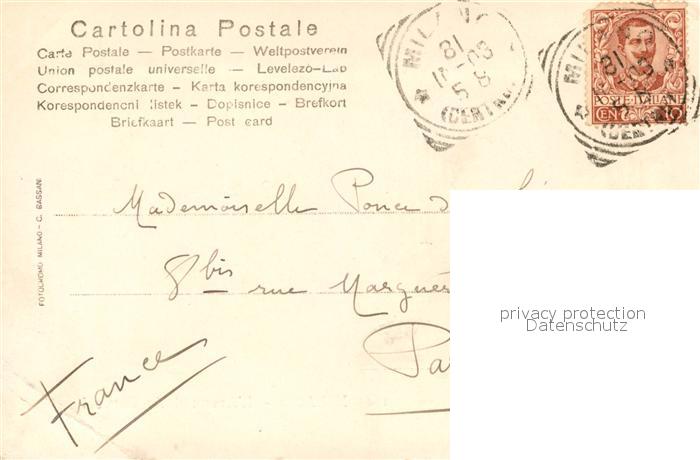 Cartolina Postale
Carte Postale — Postkarte — Weltpostverein
Union postale universelle — Levelezö-Lap
Correspondenzkarte - Karta korespondencyjna
Korespondencni listek - Dopisnice - Brefkort
Briefkaart — Post card
MILANO
(CENTRO)
MILANO
(CENTRO)
POSTE ITALIANE
CENT 10
FOTOCROMO MILANO - C. BASSANI
Mademoiselle Ponce d
8 bis rue Margue
Pa
France
privacy protection
Datenschutz